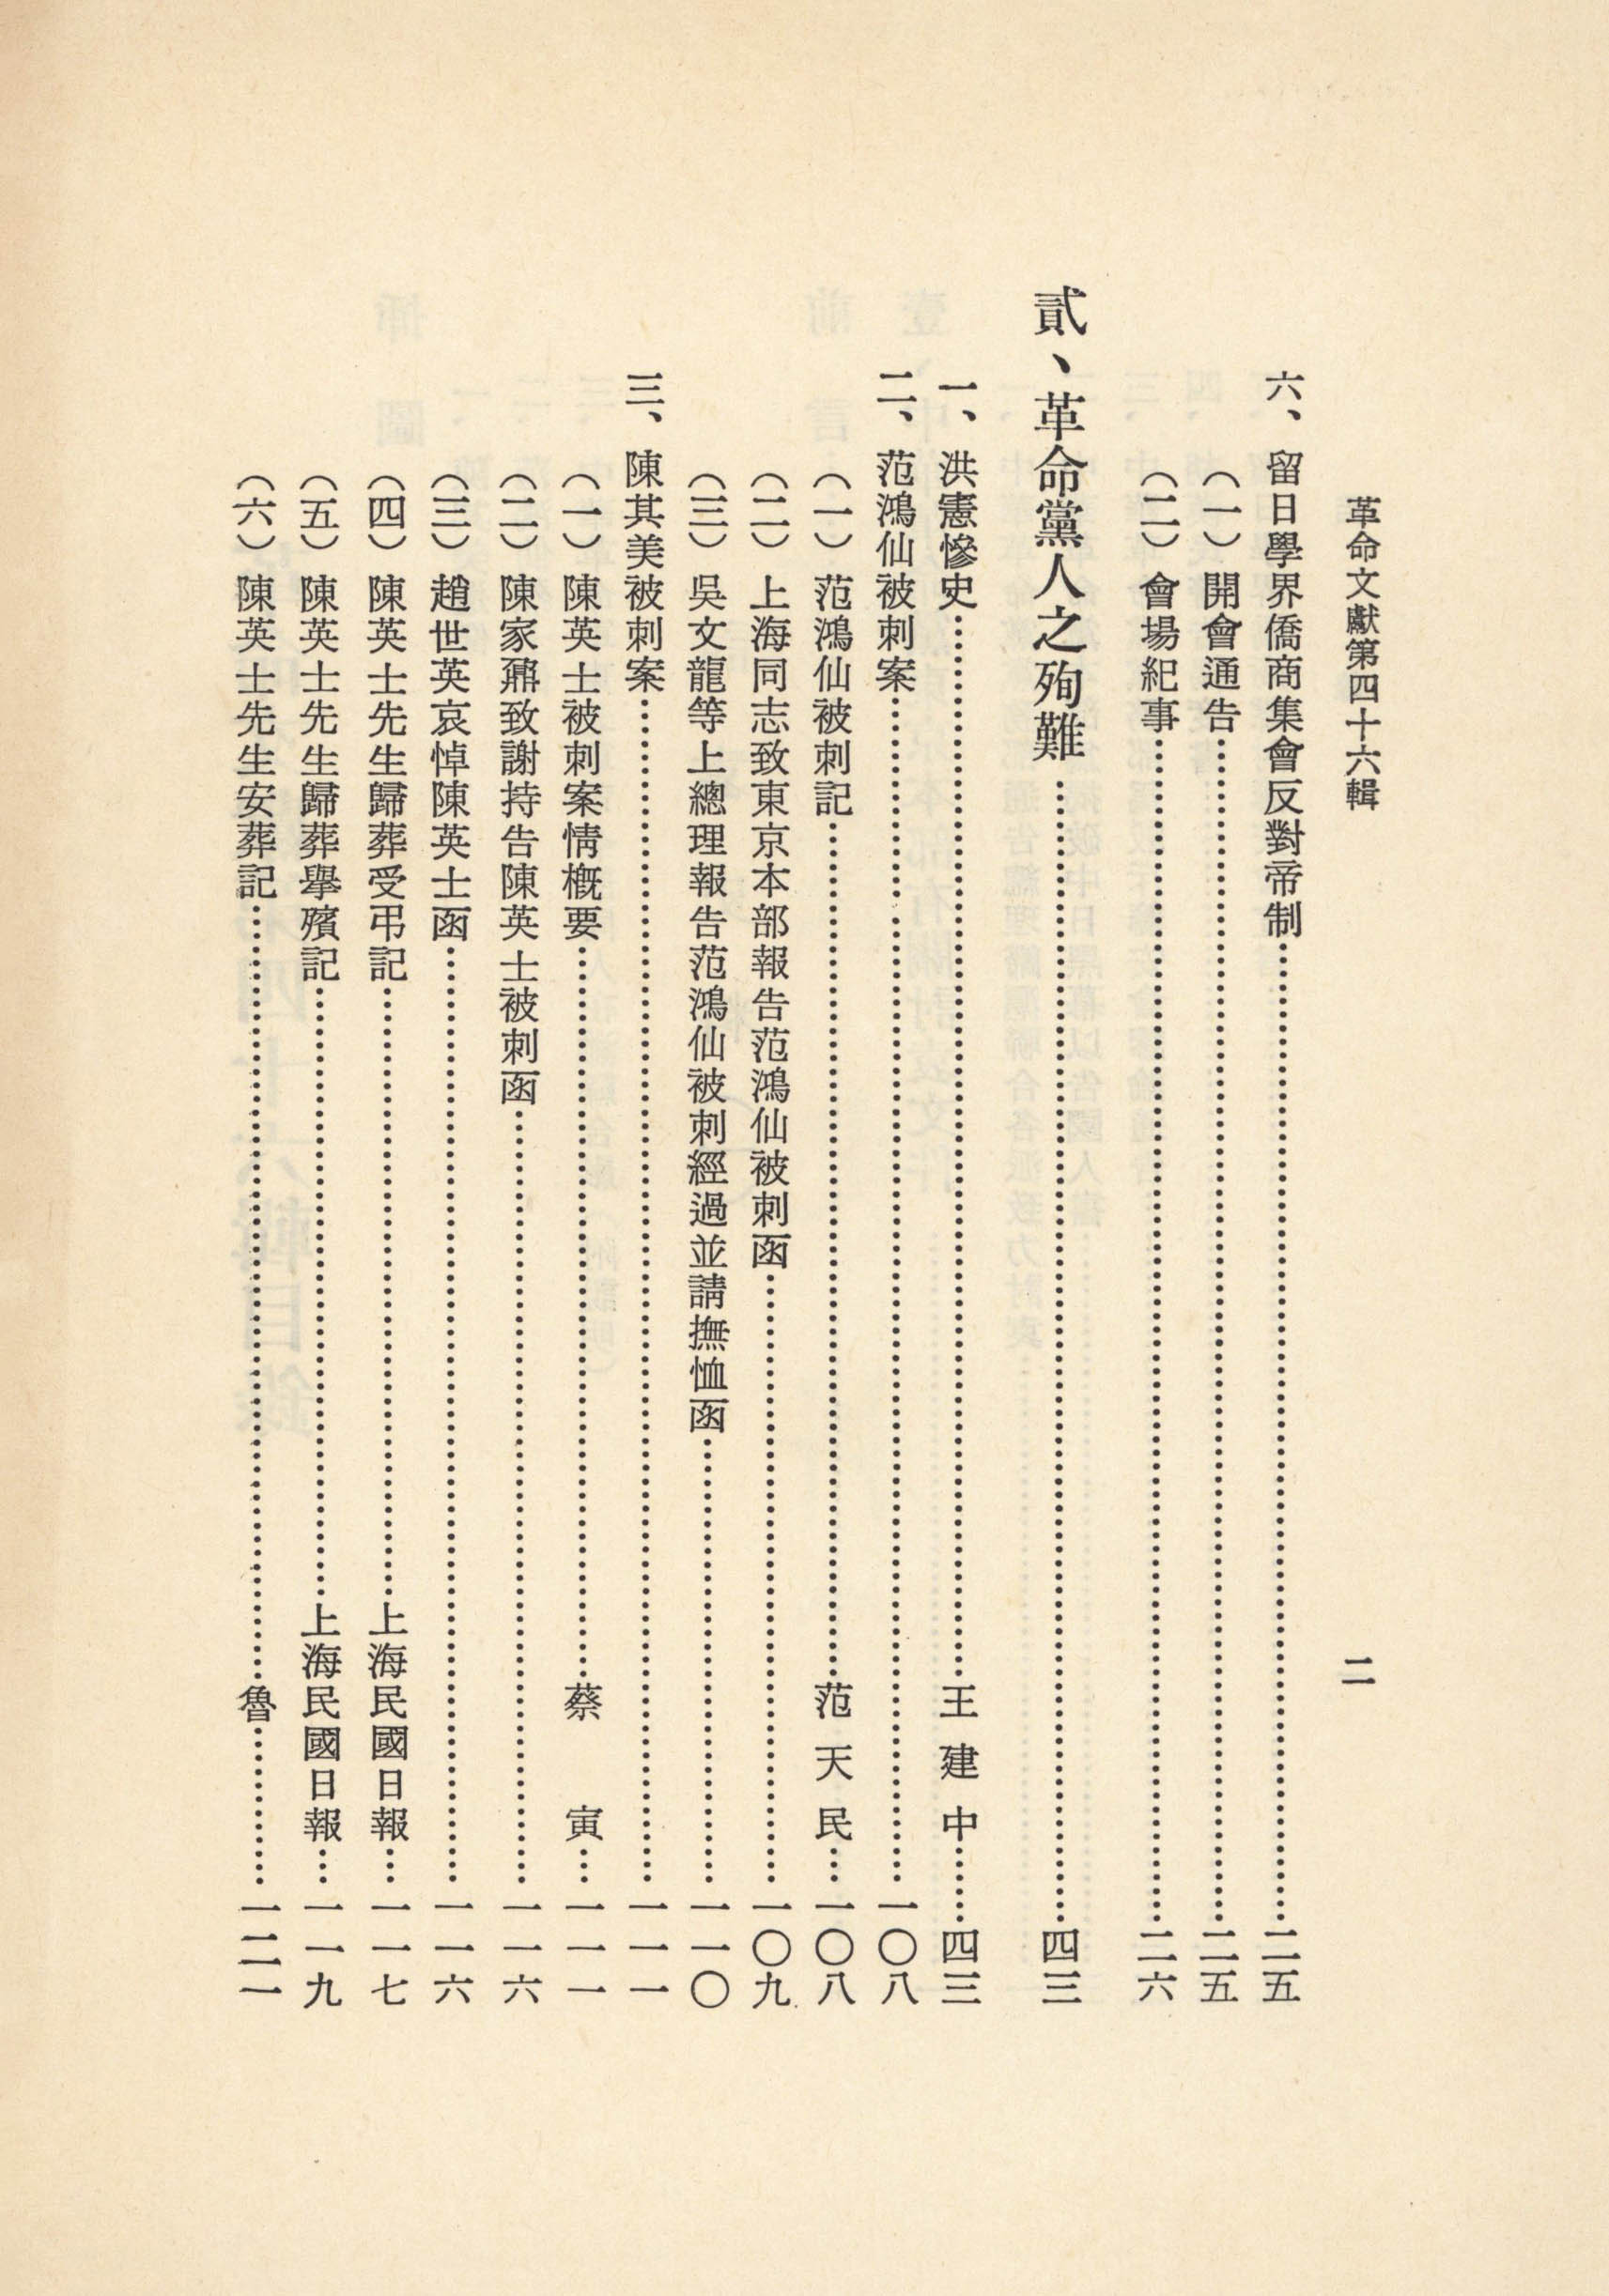 革命文獻第四十六輯
二
六、留日學界僑商集會反對帝制……二五
（一）開會通告……二五
（二）會場紀事……二六
貳、革命黨人之殉難……四三
一、洪憲慘史……王建中……四三
二、范鴻仙被刺案……一〇八
（一）范鴻仙被刺記……范天民…一〇八
（二）上海同志致東京本部報告范鴻仙被刺函……一〇九
（三）吳文龍等上總理報告范鴻仙被刺經過並請撫恤函……一一〇
三、陳其美被刺案……一一一
（一）陳英士被刺案情概要……蔡寅…一一一
（二）陳家鼐致謝持告陳英士被刺函……一一六
（三）趙世英哀悼陳英士函……一一六
（四）陳英士先生歸葬受弔記……上海民國日報…一一七
（五）陳英士先生歸葬舉殯記……上海民國日報…一一九
（六）陳英士先生安葬記……魯……一二一